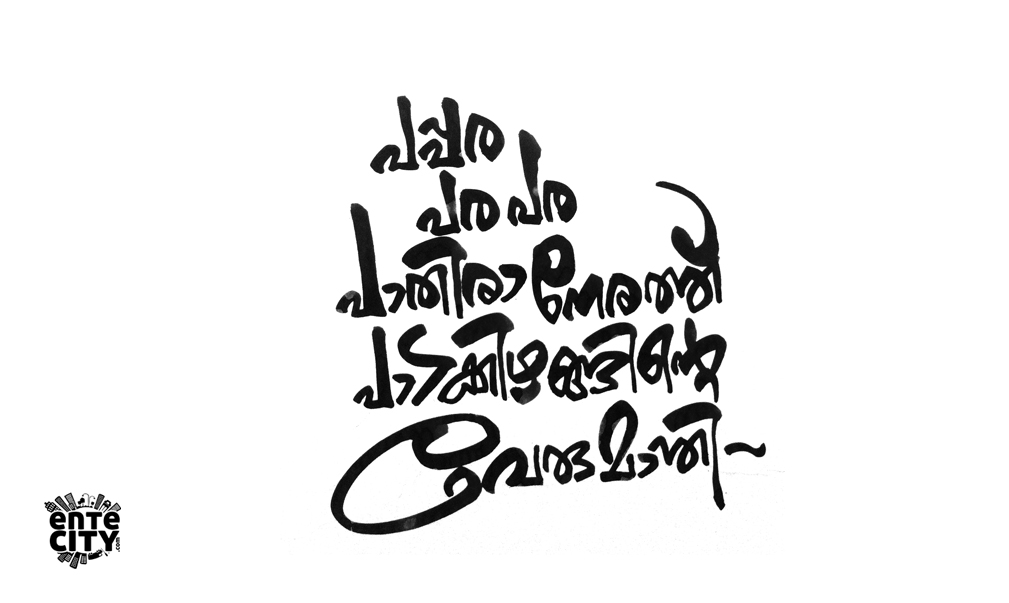 പപ്പര
പര പര
പാതിരാ നേരത്ത്
പാടകിഴങ്ങിന്റെ
വേരു മാന്തി~
ente
CITY.com